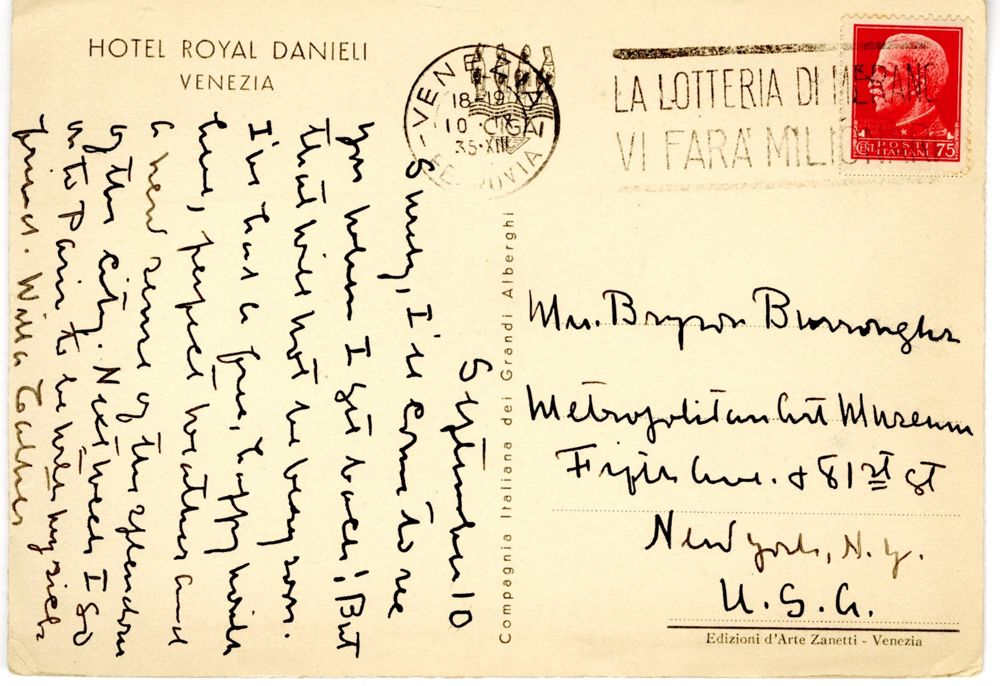 HOTEL ROYAL DANIELI
VENEZIA
VENEZIA
18-19
10 · CIGA
35·XIII
FERROVIA
LA LOTTERIA DI MERANO
VI FARA' MILIONARI
POSTE
CENT. ITALIANE 75
September 10
Surely, I'll come to see
you when I get back! But
that will not be very soon.
I've had a fine, happy month
here, perfect weather and
a new sense of the splendour
of this city. Next week I go
on to Paris to be with my sick
friend. Willa Cather
Compagnia Italiana dei Grandi Alberghi
Bryson Burroughs
Metropolitan Art Museum
Fifth Ave. & 81st St
New York, N.Y.
U.S.A.
Edizioni d'Arte Zanetti - Venezia